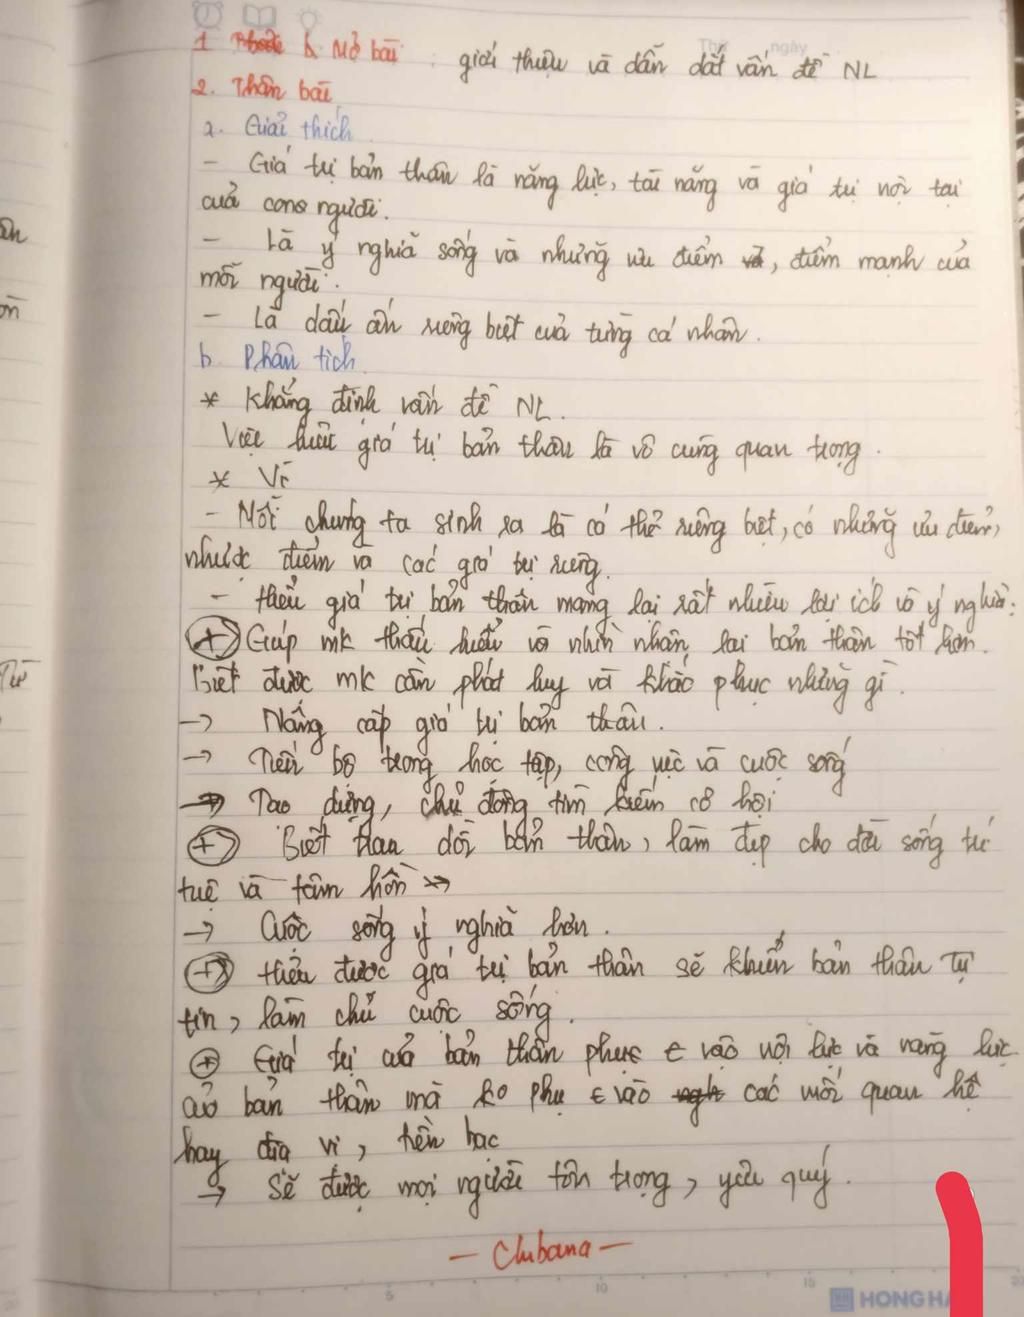 1 Mở bài : giới thiệu và dẫn dắt vấn đề NL
Thứ ngày
2. Thân bài
a. Giải thích
- Giá trị bản thân là năng lực, tài năng và giá trị nội tại
của con người.
- Là ý nghĩa sống và những ưu điểm, điểm mạnh của
mỗi người.
- Là dấu ấn riêng biệt của từng cá nhân.
b. Phân tích
* Khẳng định vấn đề NL.
Việc hiểu giá trị bản thân là vô cùng quan trọng.
* Vì
- Mỗi chúng ta sinh ra là cá thể riêng biệt, có những ưu điểm,
nhược điểm và các giá trị riêng.
- Hiểu giá trị bản thân mang lại rất nhiều lợi ích và ý nghĩa:
+ Giúp mk thấu hiểu và nhìn nhận lại bản thân tốt hơn.
Biết được mk cần phát huy và khắc phục những gì.
→ Nâng cấp giá trị bản thân.
→ Tiến bộ trong học tập, công việc và cuộc sống
→ Tạo dựng, chủ động tìm kiếm cơ hội
+ Biết trau dồi bản thân, làm đẹp cho đời sống trí
tuệ và tâm hồn
→ Cuộc sống ý nghĩa hơn.
+ Hiểu được giá trị bản thân sẽ khiến bản thân tự
tin, làm chủ cuộc sống.
+ Giá trị của bản thân phục ∈ vào nội lực và năng lực
của bản thân mà ko phụ ∈ vào các mối quan hệ
hay địa vị, tiền bạc
→ Sẽ được mọi người tôn trọng, yêu quý.
- Chibana -
5 10 15 20
HONG HA